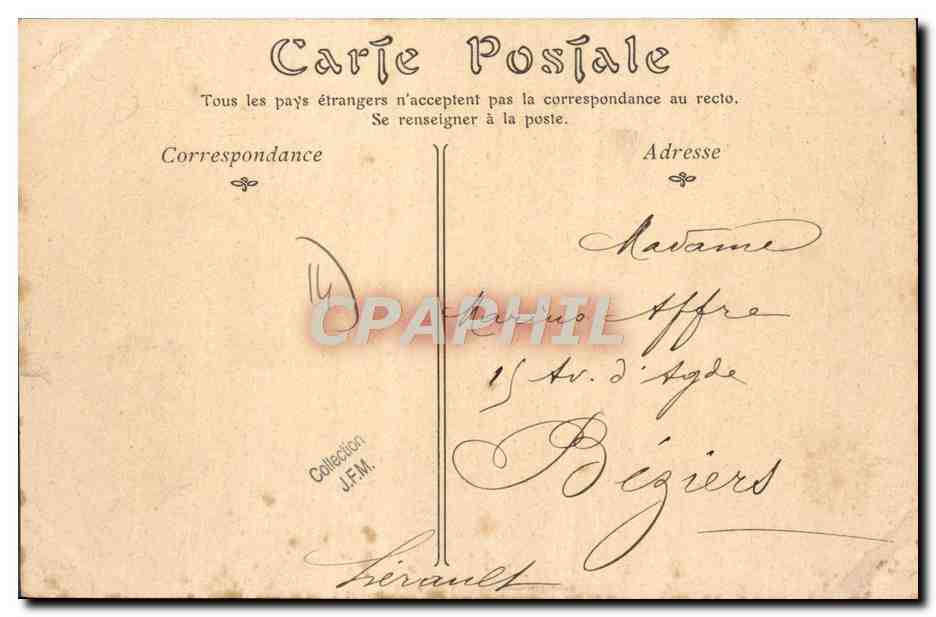 Carte Postale
Tous les pays étrangers n'acceptent pas la correspondance au recto.
Se renseigner à la poste.
Correspondance
Adresse
Madame
14
CPAPHIL
Marius Affre
15 Av. d'Agde
Béziers
Collection
J.F.M.
Hérault